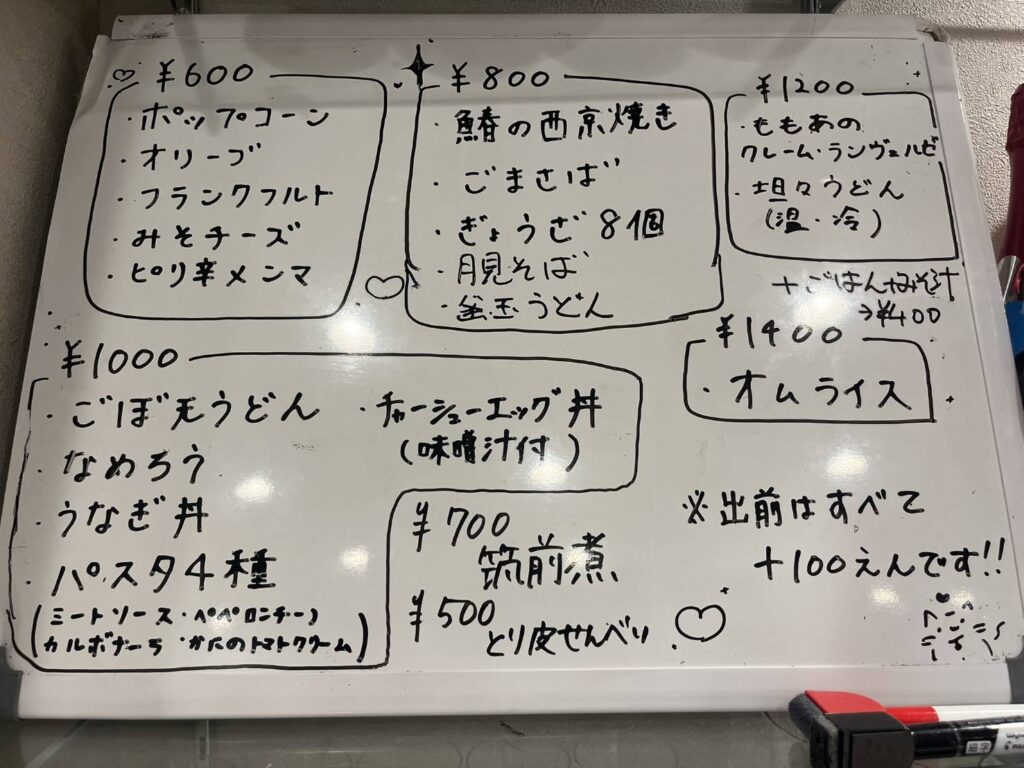 ¥600
・ポップコーン
・オリーブ
・フランクフルト
・みそチーズ
・ピリ辛メンマ
¥800
・鰆の西京焼き
・ごまさば
・ぎょうざ 8個
・月見そば
・釜玉うどん
¥1200
・ももあの
クレーム・ランヴェルセ
・坦々うどん
(温・冷)
+ごはん+みそ汁
→¥400
¥1400
・オムライス
¥1000
・ごぼ天うどん
・なめろう
・うなぎ丼
・パスタ4種
(ミートソース・ペペロンチーノ
カルボナーラ・かにのトマトクリーム)
・チャーシューエッグ丼
(味噌汁付)
¥700
筑前煮
¥500
とり皮せんべい
※出前はすべて
+100えんです!!
細字